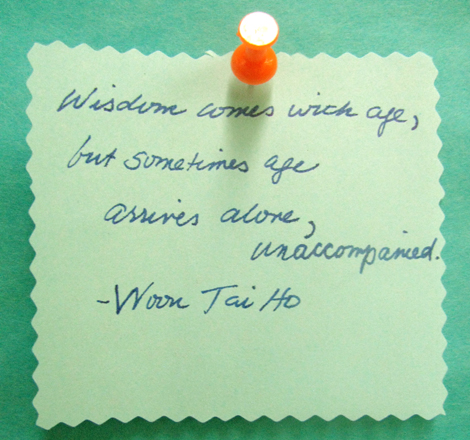 Wisdom comes with age,
but sometimes age
arrives alone,
unaccompanied.
-Woon Tai Ho